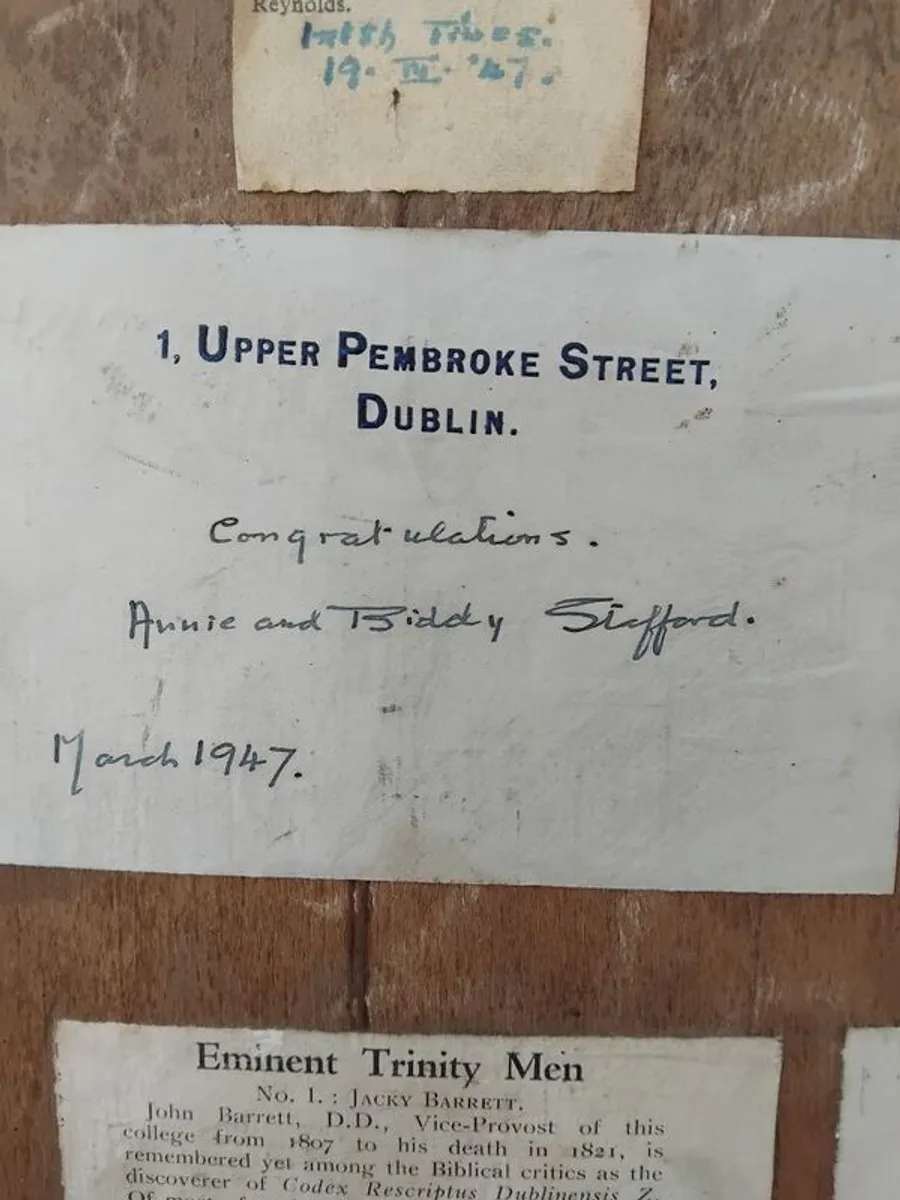 Reynolds.
Irish Times.
19. III. '47.
1, UPPER PEMBROKE STREET,
DUBLIN.
Congratulations.
Annie and Biddy Stafford.
March 1947.
Eminent Trinity Men
No. I. : JACKY BARRETT.
John Barrett, D.D., Vice-Provost of this
college from 1807 to his death in 1821, is
remembered yet among the Biblical critics as the
discoverer of Codex Rescriptus Dublinensis Z.